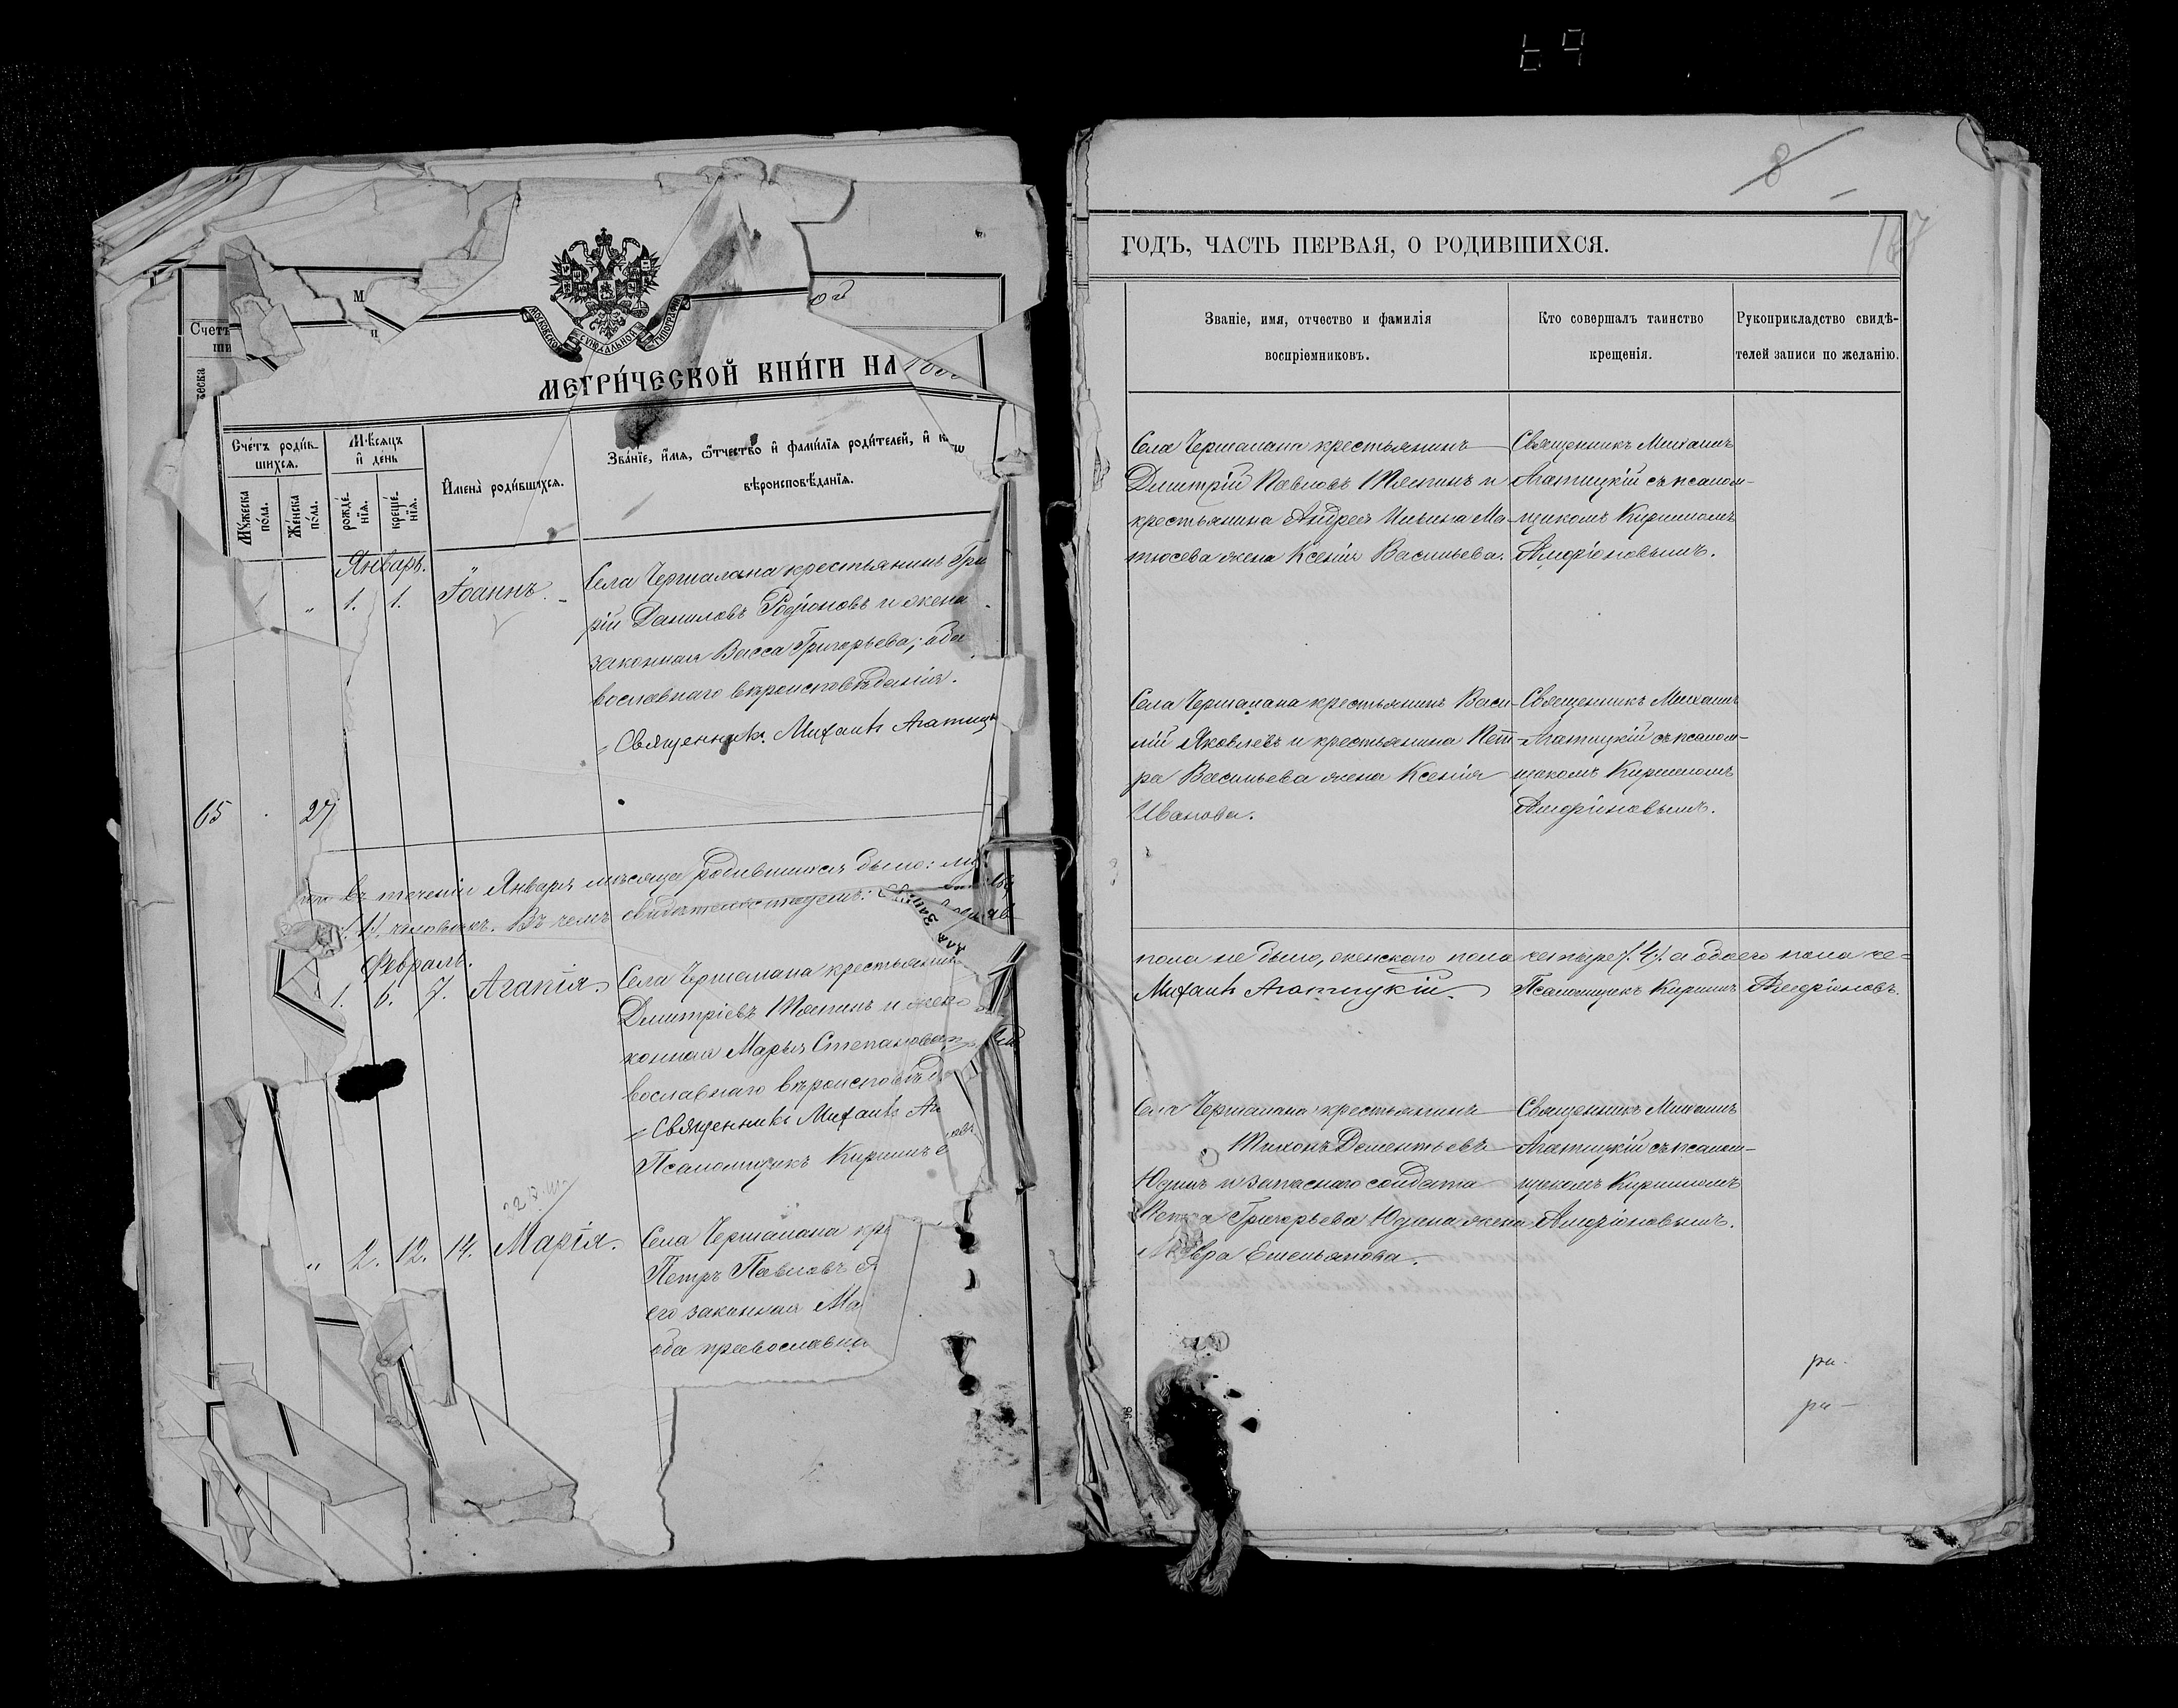 МОСКОВСКОЙ СѴНОДАЛЬНОЙ ТИПОГРАФІИ
МЕТРИ́ЧЕСКОЙ КНИ́ГИ НА
Счетъ
Сче́тъ роди́в-
шихся.
М҃ѣсяцъ
и҆ день
Мꙋ́жеска
по́ла.
Же́нска
по́ла.
рожде́-
нїя.
креще́-
нїя.
И҆мена̀ роди́вшихся.
Зва́нїе, и҆́мя, ѻ҆́тчество и҆ фами́лїя роди́телей, и҆
вѣроисповѣ́данїя.
Январь.
" 1. 1. Іоаннъ.
Села Чершалана крестьянинъ Гри
рій Даниловъ Родіоновъ и жена
законная Васса Григорьева; оба
вославнаго вѣроисповѣданія.
Священникъ Михаилъ Агатиц
65 27
въ теченіи Января мѣсяца родившихся было: му
человѣкъ. Въ чемъ свидѣтельствуемъ:
Февраль.
1. 6. 7. Агапія.
Села Чершалана крестьянин
Дмитріевъ Тяпинъ и жена
конная Марья Степанова
вославнаго вѣроисповѣд
Священникъ Михаилъ Аг
Псаломщикъ Кириллъ
" 2. 12. 14. Марія.
Села Чершалана кр
Петръ Павловъ
его законная Ма
оба православна
8
ГОДЪ, ЧАСТЬ ПЕРВАЯ, О РОДИВШИХСЯ.
Званіе, имя, отчество и фамилія
воспріемниковъ.
Кто совершалъ таинство
крещенія.
Рукоприкладство свидѣ-
телей записи по желанію.
Села Чершалана крестьянинъ
Дмитрій Павловъ Тяпинъ и
крестьянина Андрея Ильина Ма-
тюсева жена Ксенія Васильева.
Священникъ Михаилъ
Агатицкій съ псалом-
щикомъ Кирилломъ
Амфіоновымъ.
Села Чершалана крестьянинъ Васи-
лій Яковлевъ и крестьянина Пет-
ра Васильева жена Ксенія
Иванова.
Священникъ Михаилъ
Агатицкій съ псалом-
щикомъ Кирилломъ
Амфіоновымъ.
пола не было, женскаго пола четыре /.4/. а обоего пола че-
Михаилъ Агатицкій. Псаломщикъ Кириллъ Амфіоновъ.
Села Чершалана крестьянинъ
Тихонъ Дементьевъ
Юдинъ и запаснаго солдата
Петра Григорьева Юдина жена
Емельянова.
Священникъ Михаилъ
Агатицкій съ псалом-
щикомъ Кирилломъ
Амфіоновымъ.
ри-
ри-